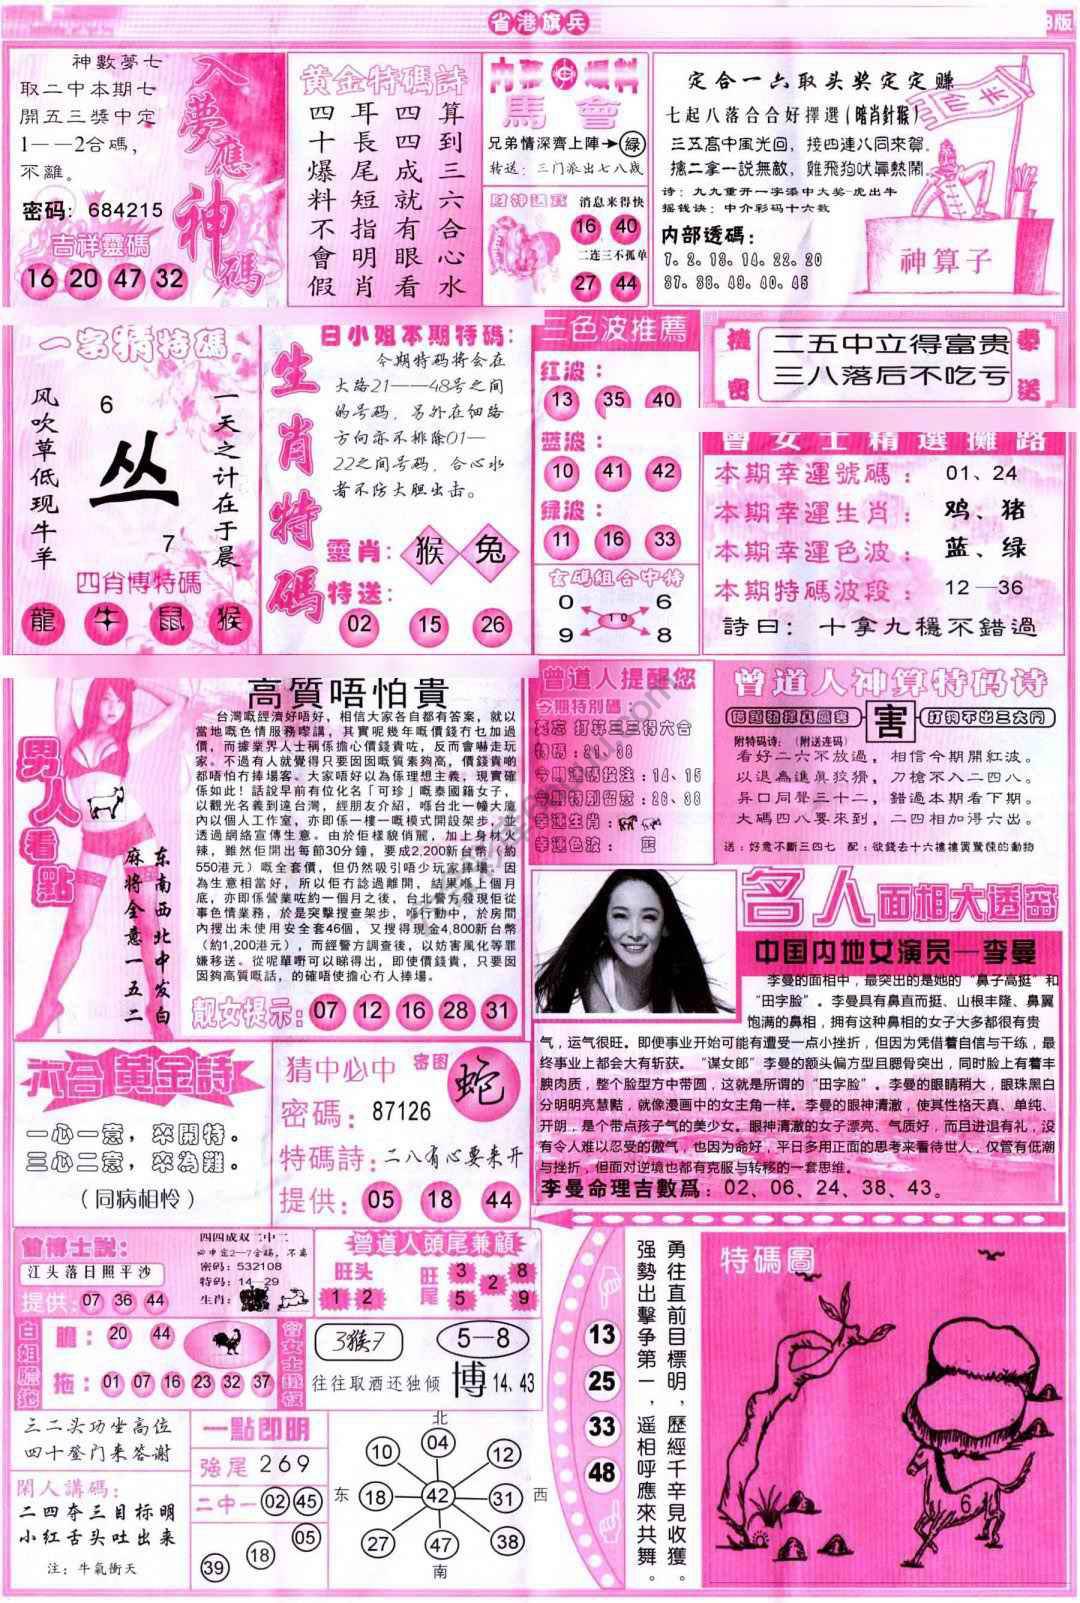 省港旗兵
B版
神數夢七
取二中本期七
開五三獎中定
1——2合碼，
不離。
密码：684215
吉祥靈碼
16 20 47 32
入夢應神碼
黄金特碼詩
四十爆料不會假
耳長尾短指明肖
四四成就有眼看
算到三六合心水
馬會
兄弟情深齊上陣→綠
转送：三门派出七八歲
消息来得快
16 40
二连三不孤单
27 44
定合一六取头奖定定赚
七起八落合合好擇選(暗肖針猴)
三五髙中風光回，接四連八同來賀。
擒二拿一説無敵，雞飛狗吠眞熱鬧
诗：九九重开一字添中大奖-虎出牛
摇钱诀：中介彩码十六数
内部透碼：
7.2.13.14.22.20
37.38.49.40.45
神算子
一字猜特碼
风吹草低现牛羊
6
丛
7
一天之计在于晨
四肖博特碼
龍 牛 鼠 猴
生肖特碼
白小姐本期特碼：
今期特码将会在
大路21——48号之间
的号码，另外在细路
方向亦不排除01—
22之间号码，合心水
者不防大胆出击。
靈肖：猴 兔
特送：
02 15 26
三色波推薦
红波：
13 35 40
蓝波：
10 41 42
绿波：
11 16 33
玄碼組合中特
0 6
10
9 8
機密
二五中立得富贵
三八落后不吃亏
奉送
曾女士精選攤路
本期幸運號碼：01、24
本期幸運生肖：鸡、猪
本期幸運色波：蓝、绿
本期特碼波段：12—36
詩曰：十拿九穩不錯過
男人看點
东南西北中发白
麻将全意一五二
高質唔怕貴
台灣嘅經濟好唔好，相信大家各自都有答案，就以
當地嘅色情服務嚟講，其實呢年嘅價錢冇乜加過
價，而據業界人士稱係擔心價錢貴咗，反而會嚇走玩
家。不過有人就覺得只要因因嘅質素夠高，價錢貴啲
都唔怕冇捧場客。大家唔好以為係理想主義，現實確
係如此！話說早前有位化名「可珍」嘅泰國籍女子，
以觀光名義到達台灣，經朋友介紹，喺台北一幢大廈
內以個人工作室，亦即係一樓一嘅模式開設架步，並
透過網絡宣傳生意。由於佢樣貌俏麗，加上身材火
辣，雖然佢開出每節30分鐘，要成2,200新台幣（約
550港元）嘅全套價，但仍然吸引唔少玩家捧場。因
為生意相當好，所以佢冇諗過離開，結果喺上個月
底，亦即係營業咗約一個月之後，台北警方發現佢從
事色情業務，於是突擊搜查架步，喺行動中，於房間
內搜出未使用安全套46個，又搜得現金4,800新台幣
（約1,200港元），而經警方調查後，以妨害風化等罪
嫌移送。從呢單嘢可以睇得出，即使價錢貴，只要因
因夠高質嘅話，的確唔使擔心冇人捧場。
靓女提示：07 12 16 28 31
曾道人提醒您
今期特別碼：
莫忘 打算三三得六合
特碼：21、38
今期連碼投注：14、15
今期特别留意：28、38
幸運生肖：
幸運色波： 藍
曾道人神算特码诗
害
打狗不出三大门
附特码诗：（附送连码）
看好二六不放過，相信今期開紅波。
以退為進眞狡猾，刀槍不入二四八。
吴口同聲三十二，錯過本期看下期。
大碼四八要來到，二四相加得六出。
送：好意不斷三四七 配：欲錢去十六樓樓買驚悚的動物
名人面相大透密
中国内地女演员—李曼
李曼的面相中，最突出的是她的“鼻子高挺”和
“田字脸”。李曼具有鼻直而挺、山根丰隆、鼻翼
饱满的鼻相，拥有这种鼻相的女子大多都很有贵
气，运气很旺。即使事业开始可能有遭受一点小挫折，但因为凭借着自信与干练，最
终事业上都会大有斩获。“谋女郎”李曼的额头偏方型且腮骨突出，同时脸上有着丰
腴肉质，整个脸型方中带圆，这就是所谓的“田字脸”。李曼的眼睛稍大，眼珠黑白
分明明亮慧黠，就像漫画中的女主角一样。李曼的眼神清澈，使其性格天真、单纯、
开朗，是个带点孩子气的美少女。眼神清澈的女子漂亮、气质好，而且进退有礼，没
有令人难以忍受的傲气，也因为命好，平日多用正面的思考来看待世人，仅管有低潮
与挫折，但面对逆境也都有克服与转移的一套思维。
李曼命理吉數爲：02、06、24、38、43。
六合黄金詩
一心一意，來開特。
三心二意，來為難。
（同病相怜）
猜中必中 密图 蛇
密碼：87126
特碼詩：二八有心要来开
提供：05 18 44
曾博士説：
江头落日照平沙
提供：07 36 44
四四成双二中二
必中定2—7合码，不离
密码：532108
特码：14—29
生肖：
曾道人頭尾兼顧
旺头
1 2
旺尾
3 8
2
5 9
白姐膽地
膽：20 44
拖：01 07 16 23 32 37
3猴7
5—8
往往取酒还独倾
博
14、43
三二头功坐高位
四十登门来答谢
閑人講碼：
二四夺三目标明
小红舌头吐出来
注：牛氣衝天
一點即明
強尾 269
二中一 02 45
05
18
39
北
04
10 12
东 18 42 31 西
27 38
47
南
13
25
33
48
勇往直前目標明，歷經千辛見收獲。
强勢出擊争第一，遥相呼應來共舞。
特碼圖
6